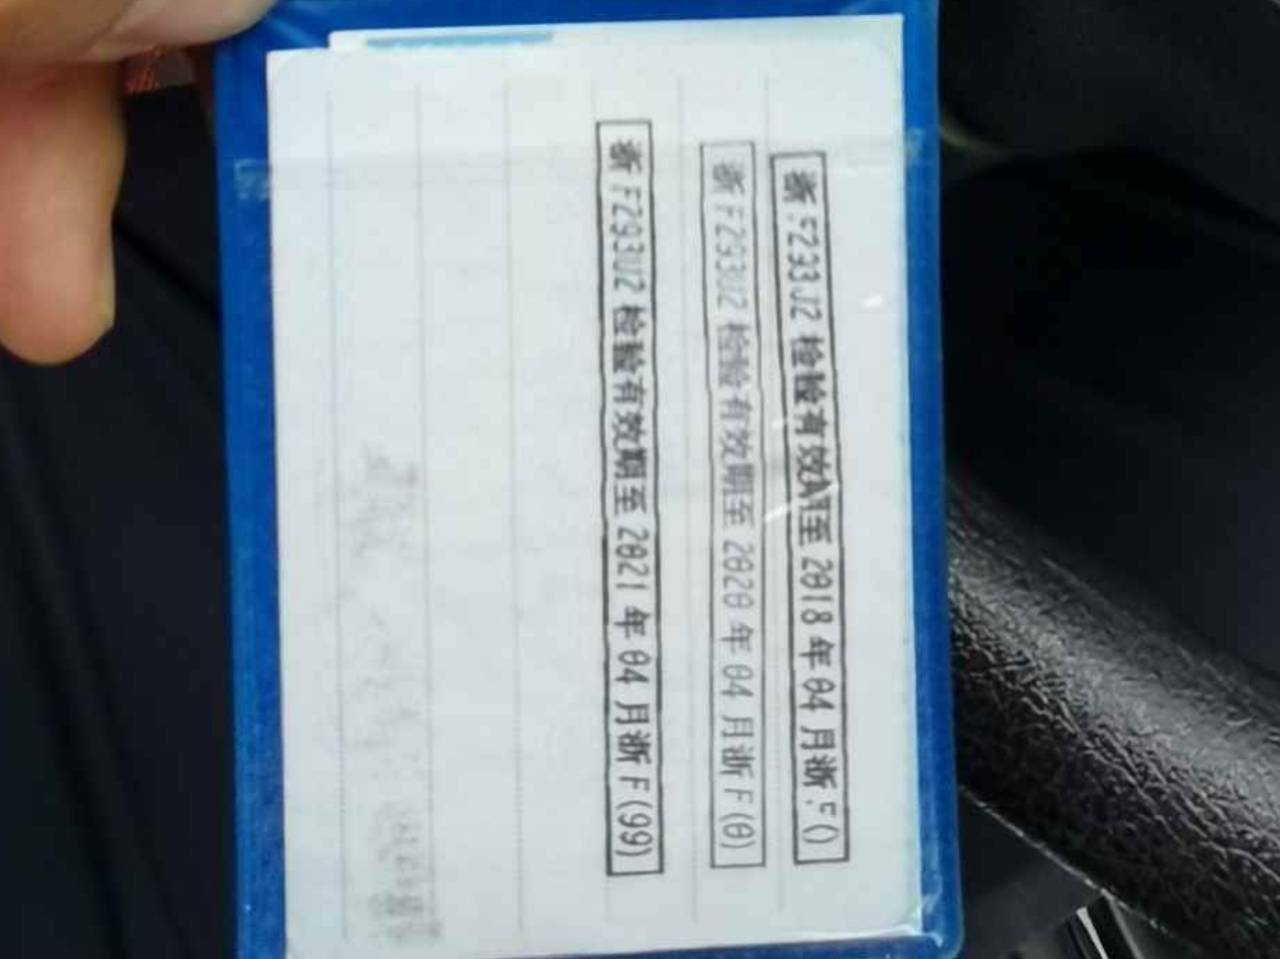 浙F293J2检验有效期至2018年04月浙F()
浙F293J2检验有效期至2020年04月浙F(0)
浙F293J2检验有效期至2021年04月浙F(99)